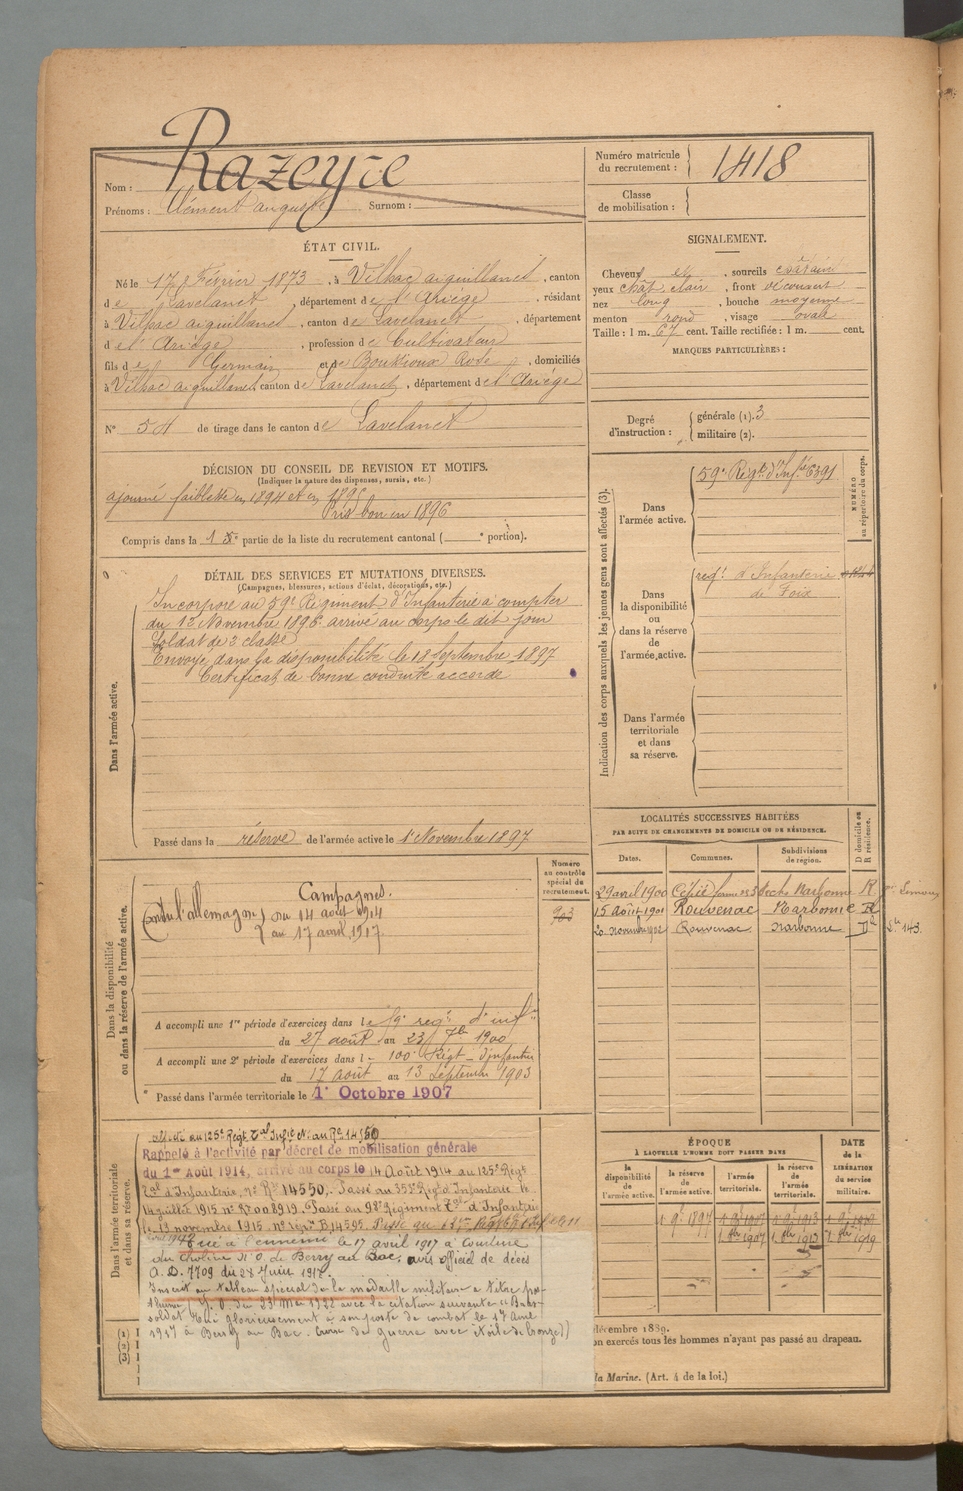 Nom : Razeyre
Prénoms : Clément auguste Surnom :
Numéro matricule du recrutement : 1418
Classe de mobilisation :
ÉTAT CIVIL.
Né le 17 Février 1873, à Vilhac aiguillanel, canton
de Lavelanet, département de l'Ariège, résidant
à Vilhac aiguillanel, canton de Lavelanet, département
d e l'Ariège, profession de Cultivateur
fils de Germain et de Rose, domiciliés
à Vilhac aiguillanel, canton de Lavelanet, département de l'Ariège
N° 54 de tirage dans le canton de Lavelanet
SIGNALEMENT.
Cheveux et, sourcils chatains
yeux chat clair, front découvert
nez long, bouche moyenne
menton rond, visage ovale
Taille : 1 m. 67 cent. Taille rectifiée : 1 m. cent.
MARQUES PARTICULIÈRES :
Degré d'instruction : générale (1). 3
militaire (2).
DÉCISION DU CONSEIL DE REVISION ET MOTIFS.
(Indiquer la nature des dispenses, sursis, etc.)
ajourné faiblesse en 1894 et en 1895
Pris bon en 1896
Compris dans la partie de la liste du recrutement cantonal ( e portion).
DÉTAIL DES SERVICES ET MUTATIONS DIVERSES.
(Campagnes, blessures, actions d'éclat, décorations, etc.)
Dans l'armée active.
Incorporé au 59e Régiment d'Infanterie à compter
du 13 Novembre 1896 arrivé au corps le dit jour
Soldat de 2 classe
Envoyé dans la disponibilité le 18 Septembre 1897
Certificat de bonne conduite accordé
Passé dans la réserve de l'armée active le 1 Novembre 1897
Indication des corps auxquels les jeunes gens sont affectés (3).
NUMÉRO au répertoire du corps.
Dans l'armée active.
59e Régt d'Infie 6391
Dans la disponibilité ou dans la réserve de l'armée active.
regt d'Infanterie
de Foix
Dans l'armée territoriale et dans sa réserve.
LOCALITÉS SUCCESSIVES HABITÉES
PAR SUITE DE CHANGEMENTS DE DOMICILE OU DE RÉSIDENCE.
Dates. Communes. Subdivisions de région. D domicile ou R résidence.
29 avril 1900 Narbonne R
15 Août 1901 Rouvenac Narbonne R
20 novembre 1902 Rouvenac Narbonne D 143.
Dans la disponibilité ou dans la réserve de l'armée active.
Numéro au contrôle spécial de recrutement.
903
Campagnes.
Contre l'allemagne du 14 août 1914
au 17 avril 1917.
A accompli une 1re période d'exercices dans le 59e regt d'inf
du 27 août au 23 7bre 1900
A accompli une 2e période d'exercices dans l 100e Régt d'infanterie
du 17 août au 13 septembre 1903
Passé dans l'armée territoriale le 1er Octobre 1907
Dans l'armée territoriale et dans sa réserve.
au 125e Régt Tal Infie N° au Re 14550
Rappelé à l'activité par décret de mobilisation générale
du 1er Août 1914, arrivé au corps le 14 Août 1914 au 125e Régt
Tal d'Infanterie, N° Re 14550. Passé au 353e Régt d'Infanterie le
14 juillet 1915 n° 8919. Passé au 98e Régiment Tal d'Infanterie
le 13 novembre 1915 n° 14595.
Tué à l'ennemi le 17 avril 1917 à
du Choléra N. O. de Berry au Bac, avis officiel de décès
A. D. 7709 du 28 Juin 1917.
Inscrit au tableau spécial de la médaille militaire à titre posthume
J. O. du 23 Mai 1922 avec la citation suivante « Brave
soldat tué glorieusement à son poste de combat le 17 Avril
1917 à Berry au Bac. Croix de guerre avec étoile de bronze »
ÉPOQUE
À LAQUELLE L'HOMME DOIT PASSER DANS
la disponibilité de l'armée active. la réserve de l'armée active. l'armée territoriale. la réserve de l'armée territoriale.
DATE de la LIBÉRATION du service militaire.
1 9 1897
1 8bre 1907
(1)
(2)
(3)
décembre 1889.
on exercés tous les hommes n'ayant pas passé au drapeau.
la Marine. (Art. 4 de la loi.)